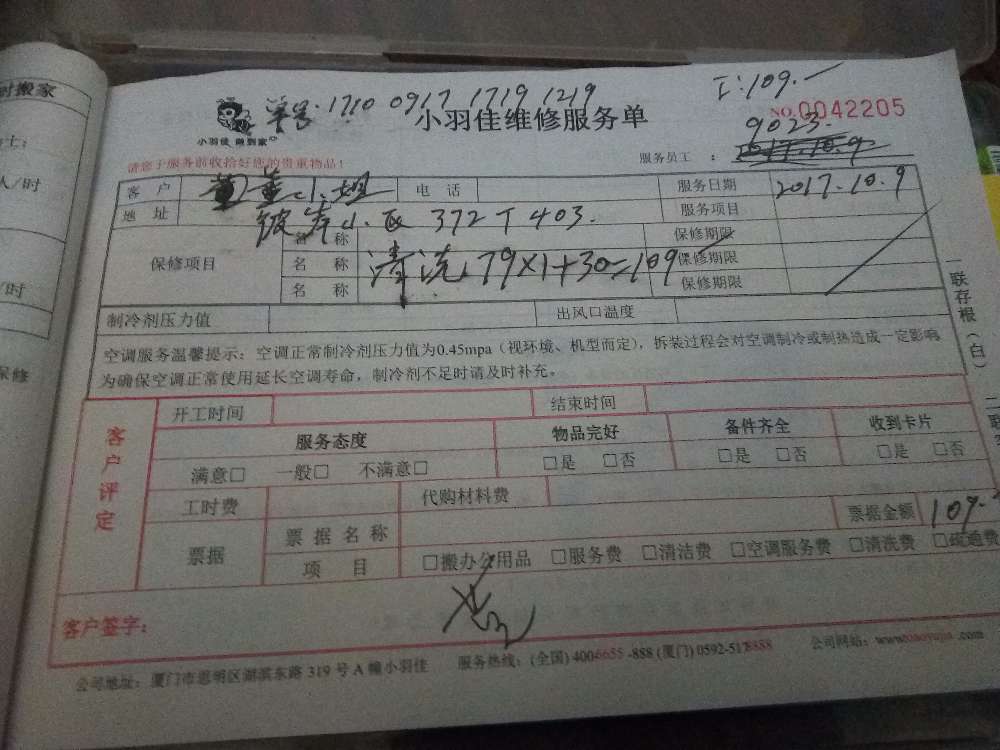 I:109.—
单号:1710 0917 1719 1219
小羽佳 做到家
小羽佳维修服务单
NO.0042205
请您于服务前收拾好您的贵重物品!
服务员工 : 9023.
客 户 董小姐 电 话 服务日期 2017.10.9
地 址 彼岸小区 372T403. 服务项目
保修项目 名 称 保修期限
名 称 清洗 79×1+30=109 保修期限
名 称 保修期限
制冷剂压力值 出风口温度
空调服务温馨提示:空调正常制冷剂压力值为0.45mpa(视环境、机型而定),拆装过程会对空调制冷或制热造成一定影响
为确保空调正常使用延长空调寿命,制冷剂不足时请及时补充。
客户评定
开工时间 结束时间
服务态度 物品完好 备件齐全 收到卡片
满意□ 一般□ 不满意□ □是 □否 □是 □否 □是 □否
工时费 代购材料费
票据 票据名称 票据金额 109.-
项 目 □搬办公用品 □服务费 □清洁费 □空调服务费 □清洗费 □疏通费
客户签字:
公司地址:厦门市思明区湖滨东路 319 号 A 幢小羽佳 服务热线:(全国) 4006655-888 (厦门) 0592-5178888 公司网站:www.xiaoyujia.com
一联存根(白)
时搬家
士:
人/时
/时
保修